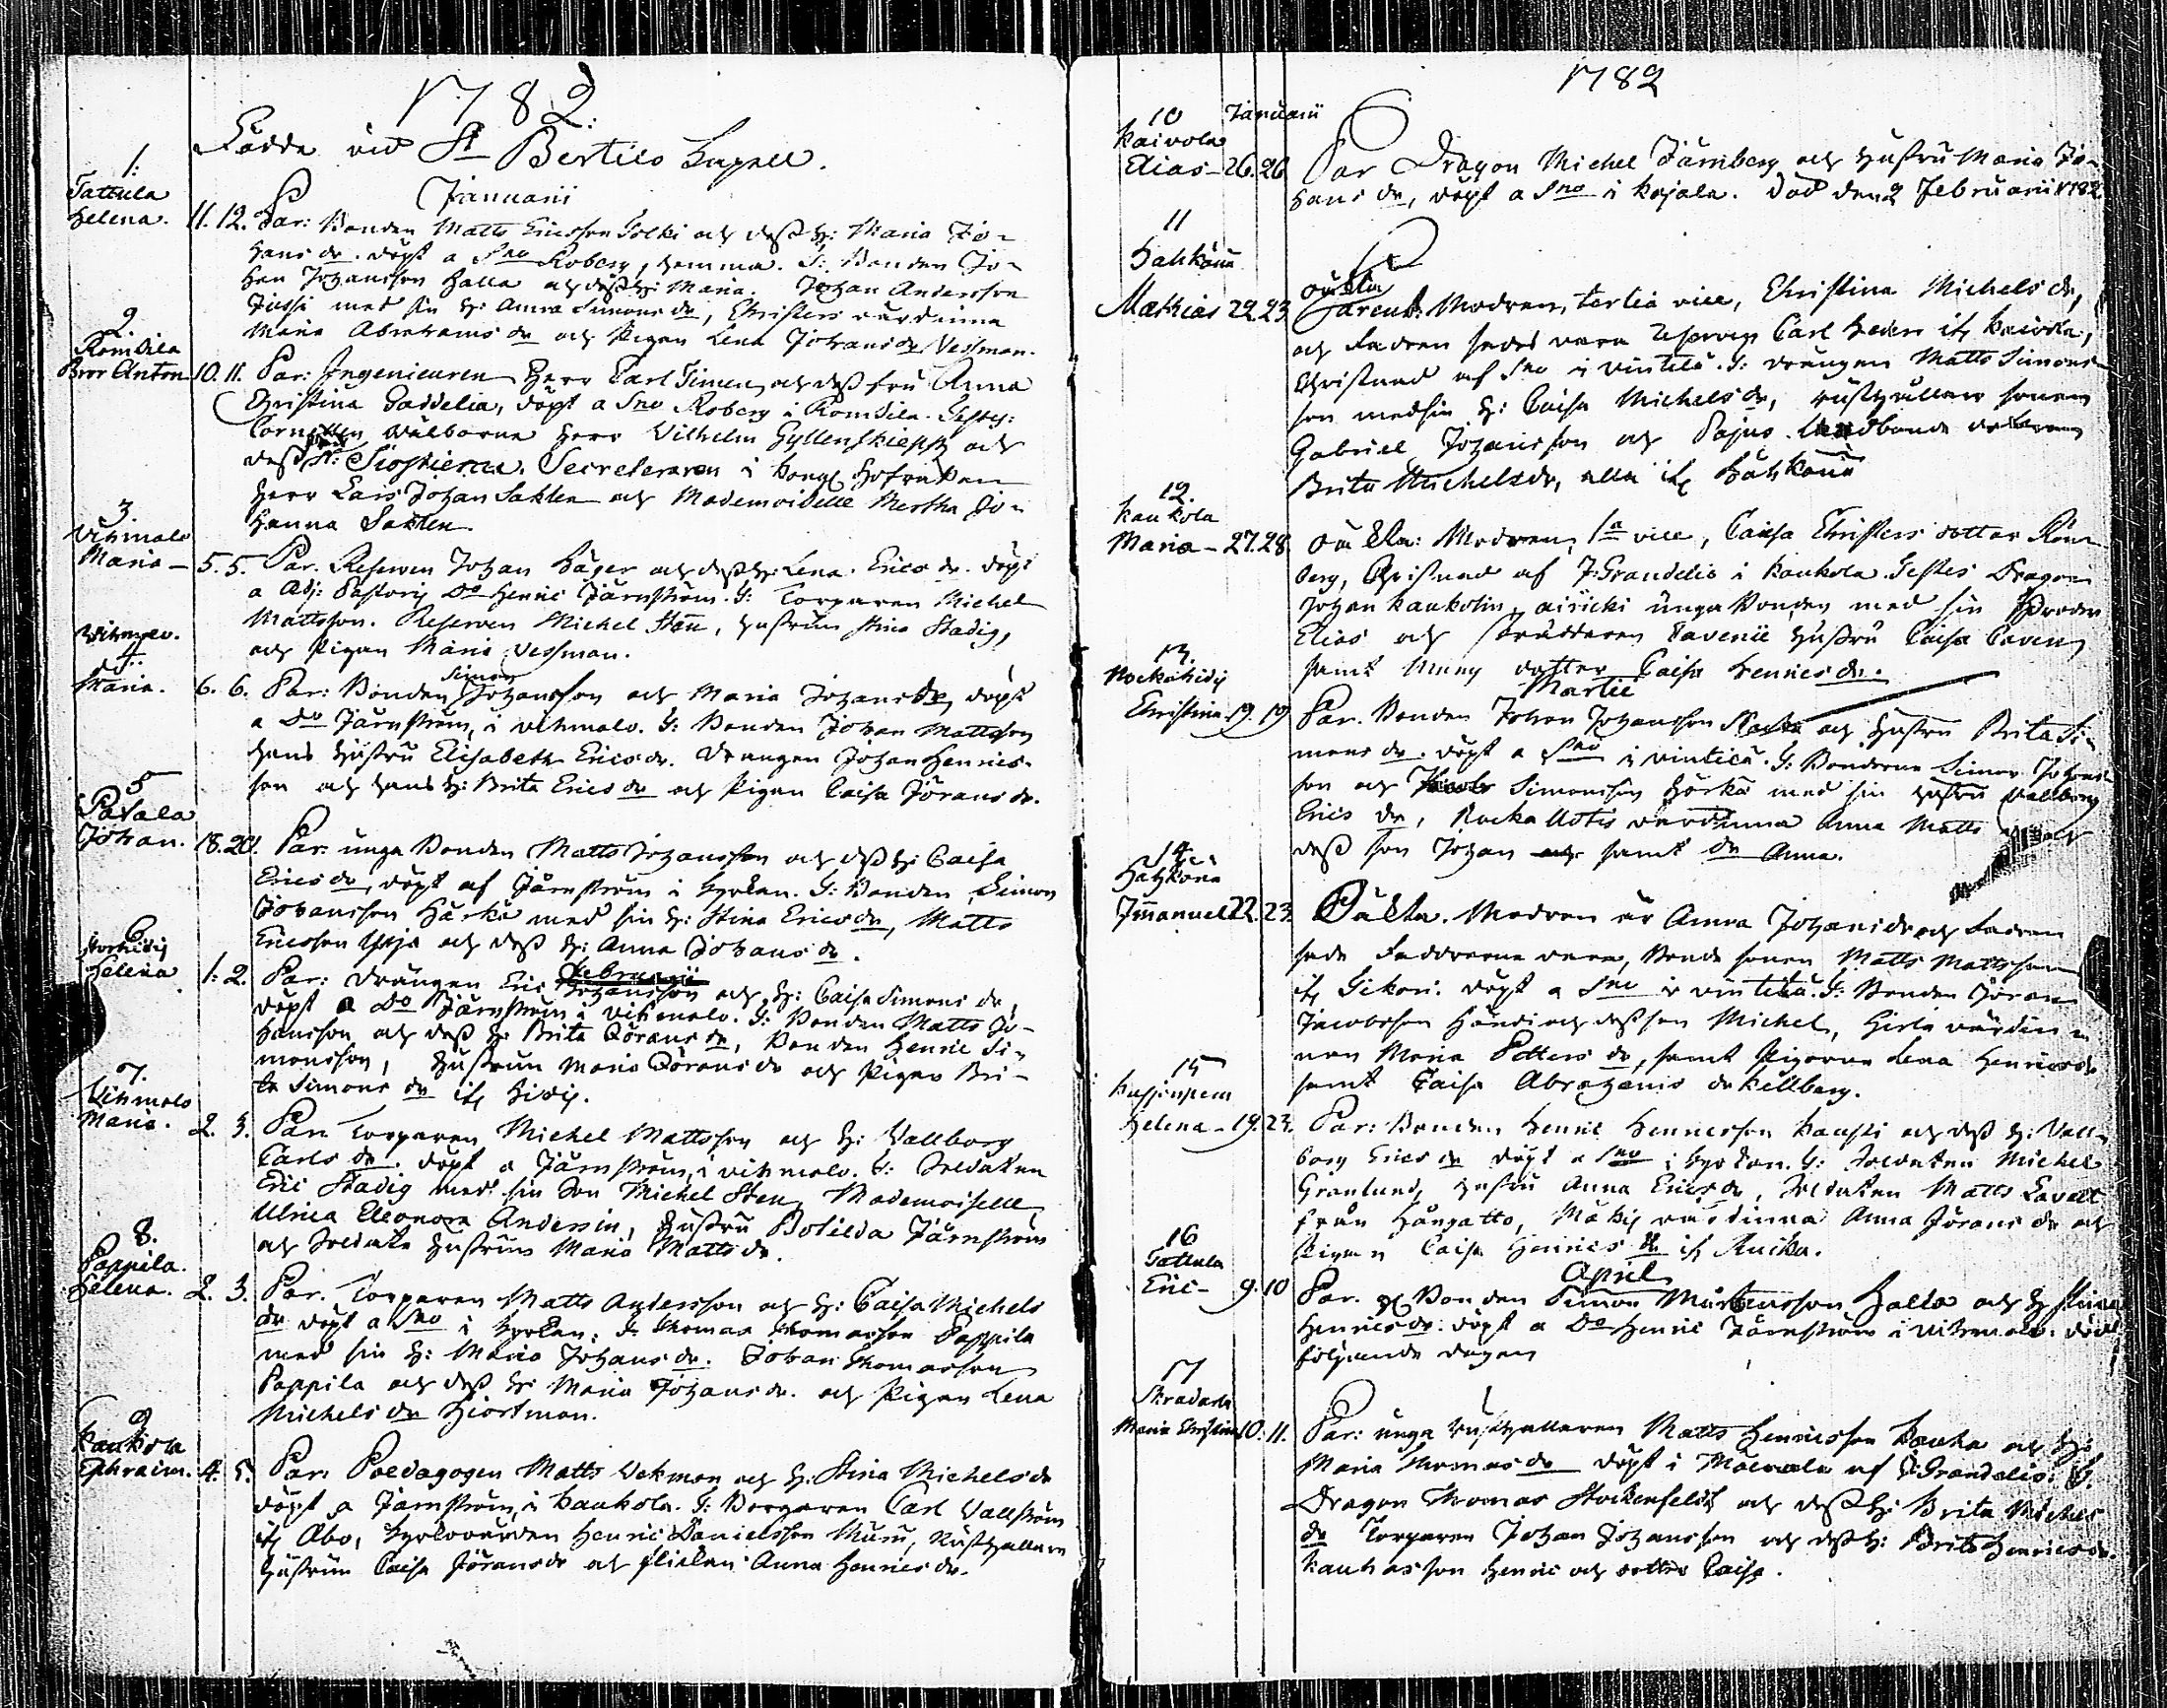 1782.
Födde vid St Bertils Capell.
Januarii
1.
Tattula
Helena. 11. 12. Par: Bonden Matts Ericsson Solki och dess H: Maria Jo-
hans dr. döpt a Sno Roberg, hemma. T: Bonden Jo-
han Johansson Halla och dess H: Maria. Johan Andersson
Jussi med sin H: Anna Simons dr, Christers värdinna
Maria Abrahams dr och Pigan Lena Johans dr Vessman.
2.
Romsila
Bror Anton 10. 11. Par: Ingenieuren Herr Carl Timen och dess fru Anna
Christina Gaddelia, döpt a Sno Roberg i Romsila. Testes:
Cornetten Wälborne Herr Vilhelm Gyllenskiepp och
dess Fr: Siöstierna. Secreteraren i Kongl Hofrätten
Herr Lars Johan Sahlen och Mademoiselle Mertha Jo-
hanna Sahlen.
3.
Vihmalo
Maria - 5. 5. Par. Reserven Johan Häger och dess H: Lena Erics dr. döpt
a Adj: Pastoris Do Henric Järnström. T: Torparen Michel
Mattsson. Reserven Michel Sten, hustrun Stina Stadig,
och Pigan Maria Vessman.
Vihmalo.
4.
Maria. 6. 6. Par: Bonden Simon Johansson och Maria Johans dr, döpt
a Do Järnström, i Vihmalo. T: Bonden Johan Mattsson
hans hustru Elisabeth Erics dr. Drängen Johan Henrics-
son och hans H: Brita Erics dr och Pigan Caisa Jörans dr.
5
Pavala
Johan. 18. 20. Par: unga Bonden Matts Johansson och dess H: Caisa
Erics dr, döpt af Järnström i Kyrkan. T: Bonden Simon
Johansson Härkä med sin H: Stina Erics dr, Matts
Ericsson Yrjä och dess H: Anna Johans dr.
Februarii
6.
Helena 1: 2. Par: Drängen Eric Johansson och H: Caisa Simons dr,
döpt a Do Järnström i Vihmalo. T: Bonden Matts Jo-
hansson och dess H: Brita Jörans dr, Bonden Henric Si-
monsson, hustrun Maria Jörans dr och Pigan Bri-
ta Simons dr ifr Hidis.
7.
Vihmalo
Maria. 2. 3. Par. Torparen Michel Mattsson och H: Vallborg
Carls dr. döpt a Järnström, i Vihmalo. T: Soldaten
Eric Stadig med sin Son Michel Sten, Mademoiselle
Ulrica Eleonora Anderssin, hustru Botilda Järnström
och Soldate hustrun Maria Matts dr.
8.
Pappila.
Helena. 2. 3. Par. Torparen Matts Andersson och H: Caisa Michels
dr döpt a Sno i Kyrkan. T: Thomas Thomasson Pappila
med sin H: Maria Johans dr. Johan Thomasson
Pappila och dess H: Maria Johans dr. och Pigan Lena
Michels dr Hiortman.
9
Kaukola
Ephraim. 4. 5. Par: Poedagogen Matts Vekman och H: Stina Michels dr
döpt a Järnström, i Kaukola. T: Borgaren Carl Vallström
ifr Abo, Kyrkovärden Henric Danielsson Muru, Rusthållare
hustrun Caisa Jörans dr och flickan Anna Henrics dr.
1782
Januarii
10
Kaivola
Elias - 26. 26 Par Dragon Michel Järnberg och hustru Maria Jo-
hans dr, döpt a Sno i Kajala. död den 2 Februarii 1782.
11
Hahkana
Mathias 22. 23 oäkta
Parent: Modren, tertia vice, Christina Michels dr,
och Fadren sades vara Reserven Carl Heden ifr Kaivola,
Christnad af Sno i Vintelä. T: drängen Matts Simons-
son med sin H: Caisa Michels dr, rusthållare sonen
Gabriel Johansson och Pajus Landbonde dottren
Brita Michels dr, alla ifr Hahkana
12.
Kaukola
Maria - 27. 28 oäkta: Modren, 1a vice, Caisa Christers dotter Rön-
berg, Christnad af J: Grandelio i Kaukola. Testes Dragon
Johan Kaukolin, äiricki unga Bonden med sin Broder
Elias och Skräddaren Tavenii hustru Caisa Caven
samt Muny dotter Caisa Henrics dr.
Martii
13.
Christina. 19. 19 Par. Bonden Johan Johansson och hustru Brita Si-
mons dr. döpt a Sno i Vintelä. T: Bönderne Simon Johans-
son och Simonsson Härkä med sin hustru Vallborg
Erics dr, värdinna Anna Matts
dess son Johan samt dr Anna.
14
Hahkana
Immanuel 22. 23. Oäkta. Modren är Anna Johans dr och Fadren
sade Faddrarne vara, Bonde sonen Matts Mattsson
ifr Sikari. döpt a Sno i Vintelä. T: Bonden Jöran
Jacobsson Händi och dess son Michel, värdin-
nan Maria Petters dr, samt Pigorna Lena Henrics dr
samt Caisa Abrahams dr Kellberg.
15
Helena - 19. 23. Par: Bonden Henric Henricsson Kauppi och dess H: Vall-
borg Erics dr döpt a Sno i Kyrkan. T: Soldaten Michel
Granlund, hustru Anna Erics dr, Soldaten Matts Lavall
från Hångatto, Mäkis värdinna Anna Jörans dr och
Pigan Caisa Henrics dr ifr Ruika.
April
16
Tattula
Eric - 9. 10 Par. Bonden Simon Mårtensson Halla och H Stina
Henrics dr. döpt a Do Henric Järnström i Vihmalo. död
följande dagen
17
Maria Christina 10. 11. Par: unga Rusthållaren Matts Henricsson Kauha och H:
Maria Thomas dr döpt i af J: Grandelio. T:
Dragon Thomas Stockenfeldt och dess H: Brita Michels
dr Torparen Johan Johansson och dess H: Brita Henrics dr.
Kauhas son Henric och dotter Caisa.